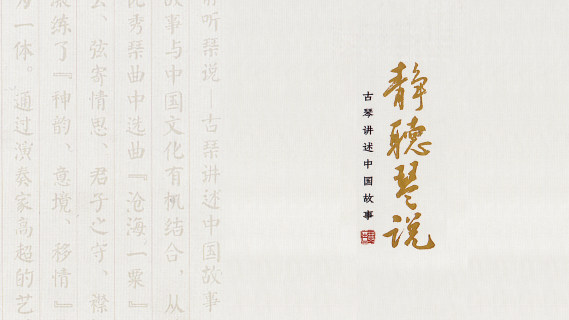 静聽琴说
古琴讲述中国故事
静听琴说 古琴讲述中国故事
故事与中国文化有机结合，从
优秀琴曲中选曲『沧海一粟』
、弦寄情思、君子之守、襟
凝练了『神韵、意境、移情』
为一体。通过演奏家高超的艺